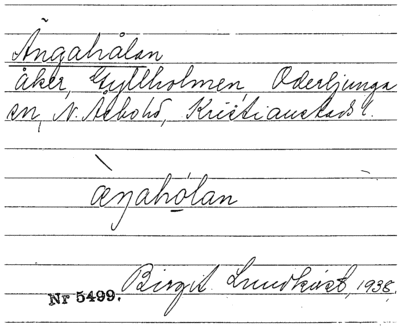 Ängahålan
åker, Gyllholmen, Oderljunga
sn, N. Åsbohd, Kristianstads l.
ænahólan
Birgit Lundkvist, 1938.
Nr 5499.